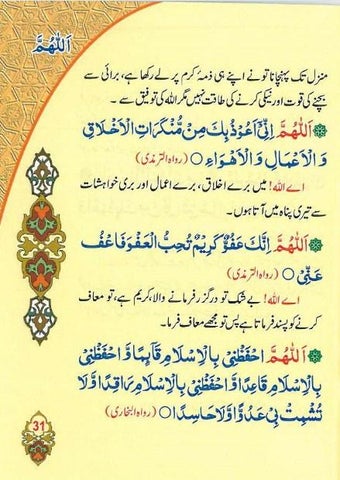 اَللّٰهُمَّ
منزل تک پہنچانا تو نے اپنے ہی ذمۂ کرم پر لے رکھا ہے، برائی سے
بچنے کی قوت اور نیکی کرنے کی طاقت نہیں مگر اللہ کی توفیق سے ۔
اَللّٰهُمَّ اِنِّيْ اَعُوْذُ بِكَ مِنْ مُّنْكَرَاتِ الْاَخْلَاقِ
وَ الْاَعْمَالِ وَ الْاَهْوَاءِ ○ (رواہ الترمذی)
اے اللہ! میں برے اخلاق، برے اعمال اور بری خواہشات
سے تیری پناہ میں آتا ہوں۔
اَللّٰهُمَّ اِنَّكَ عَفُوٌّ كَرِيْمٌ تُحِبُّ الْعَفْوَ فَاعْفُ
عَنِّيْ ○ (رواہ الترمذی)
اے اللہ! بے شک تو درگزر فرمانے والا، کریم ہے، تو معاف
کرنے کو پسند فرماتا ہے پس تو مجھے معاف فرما۔
اَللّٰهُمَّ احْفَظْنِيْ بِالْاِسْلَامِ قَآىِٕمًا وَّ احْفَظْنِيْ
بِالْاِسْلَامِ قَاعِدًا وَّ احْفَظْنِيْ بِالْاِسْلَامِ رَاقِدًا وَّ لَا
تُشْمِتْ بِيْ عَدُوًّا وَّ لَا حَاسِدًا ○ (رواہ البخاری)
31